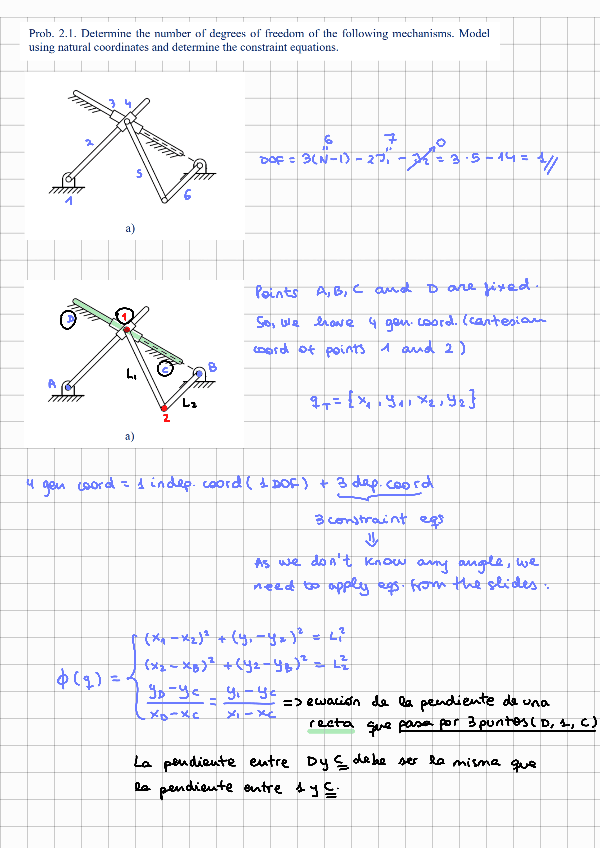 Prob. 2.1. Determine the number of degrees of freedom of the following mechanisms. Model
using natural coordinates and determine the constraint equations.
3 4
2
5
6
1
a)
6 7 0
DOF = 3(N-1) - 2J₁ - J₂ = 3·5 - 14 = 1//
D 1
C B
A L₁
L₂
2
a)
Points A, B, C and D are fixed.
So, we have 4 gen. coord. (cartesian
coord of points 1 and 2)
q_T = {x₁, y₁, x₂, y₂}
4 gen coord = 1 indep. coord (1 DOF) + 3 dep. coord
3 constraint eqs
⇓
As we don't know any angle, we
need to apply eqs. from the slides:
(x₁-x₂)² + (y₁-y₂)² = L₁²
(x₂-x_B)² + (y₂-y_B)² = L₂²
ϕ(q) = { (y_D-y_C)/(x_D-x_C) = (y₁-y_C)/(x₁-x_C) => ecuación de la pendiente de una
recta que pasa por 3 puntos (D, 1, C)
La pendiente entre D y C debe ser la misma que
la pendiente entre 1 y C.